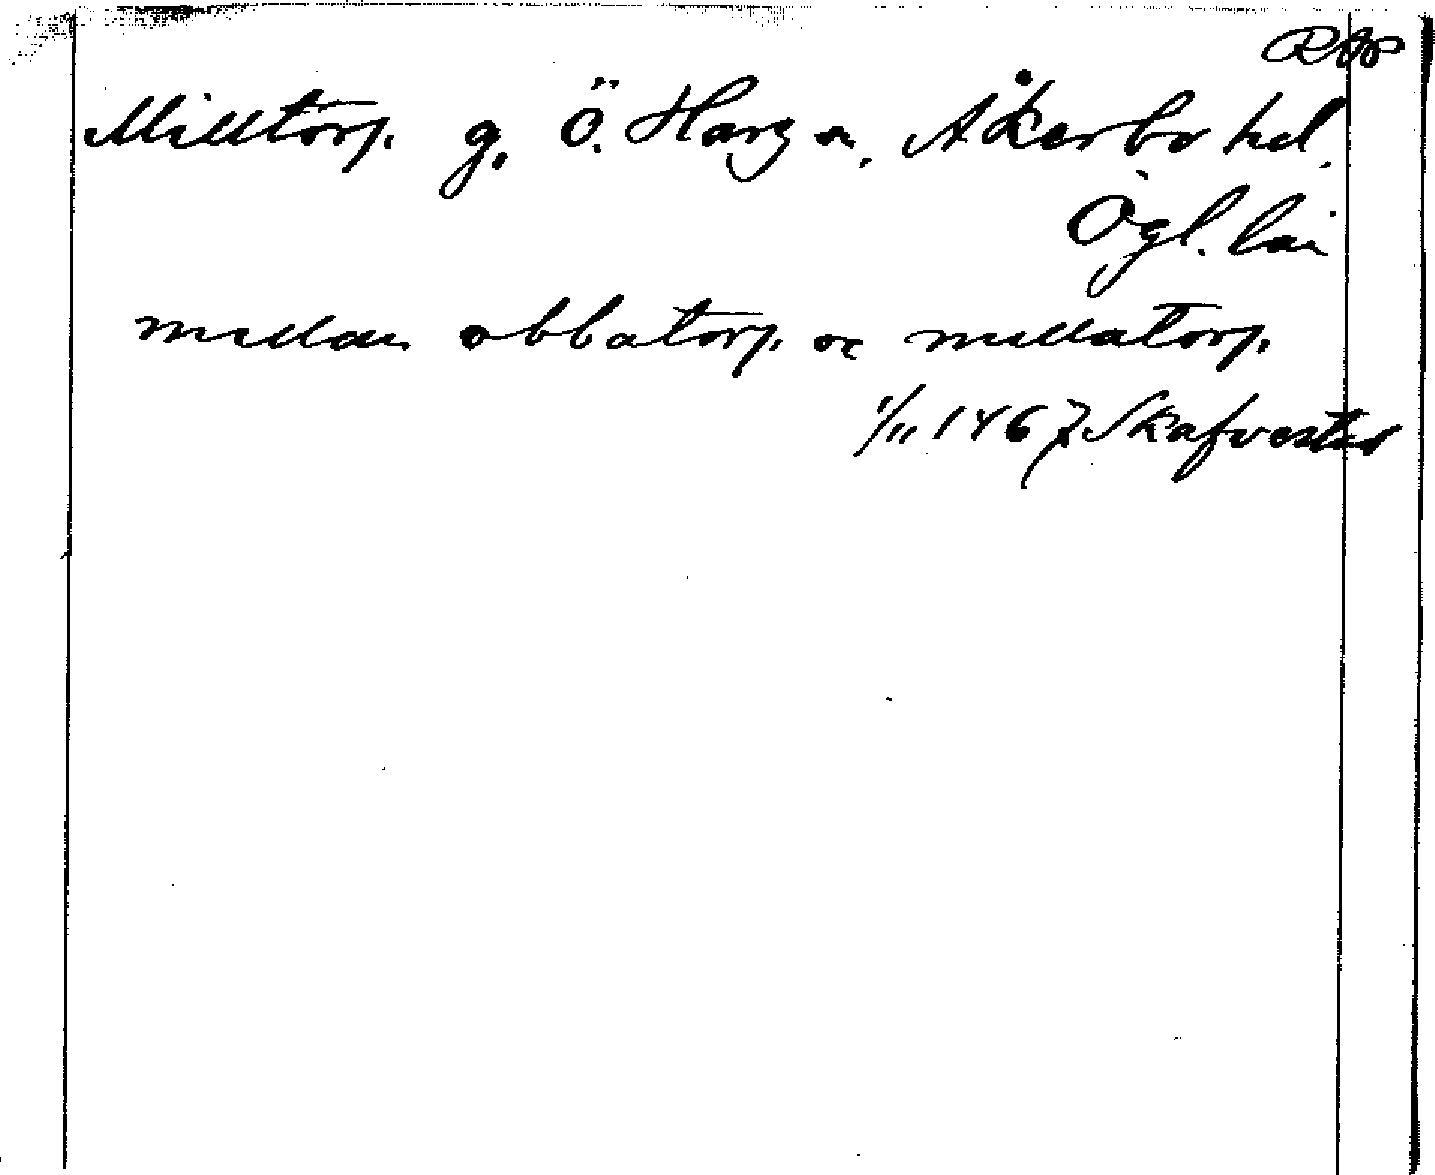 RAp
Milltorp. g. Ö. Harg sn. Åkerbo hd.
Ögl. län
mellan obbatorp oc mellatorp.
1/11 1467 Skafvestad